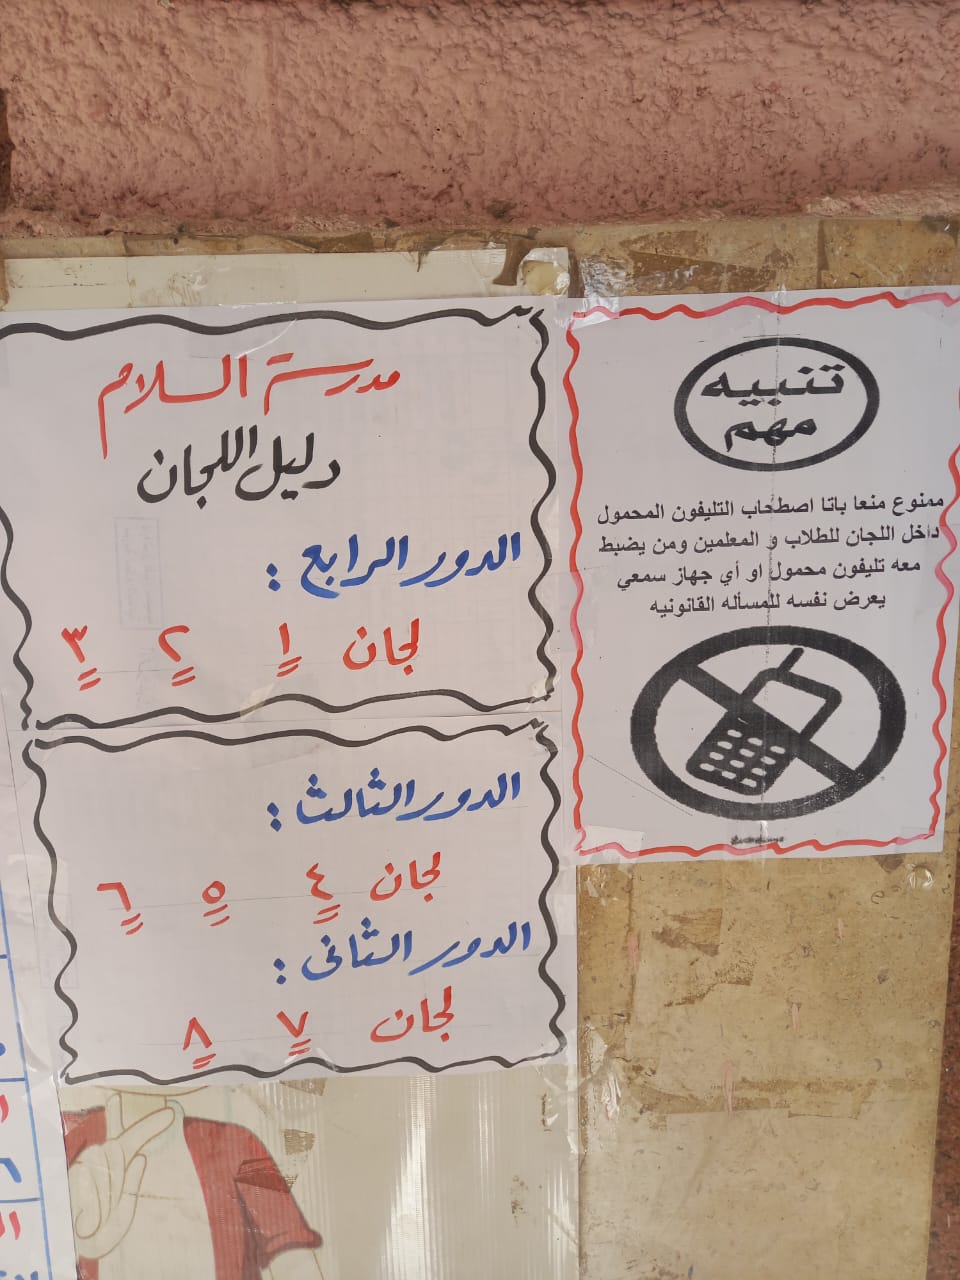 مدرسة السلام
دليل اللجان
الدور الرابع :
لجان ١ ٢ ٣
الدور الثالث :
لجان ٤ ٥ ٦
الدور الثانى :
لجان ٧ ٨
تنبيه
مهم
ممنوع منعا باتا اصطحاب التليفون المحمول
داخل اللجان للطلاب و المعلمين ومن يضبط
معه تليفون محمول او أي جهاز سمعي
يعرض نفسه للمسأله القانونيه